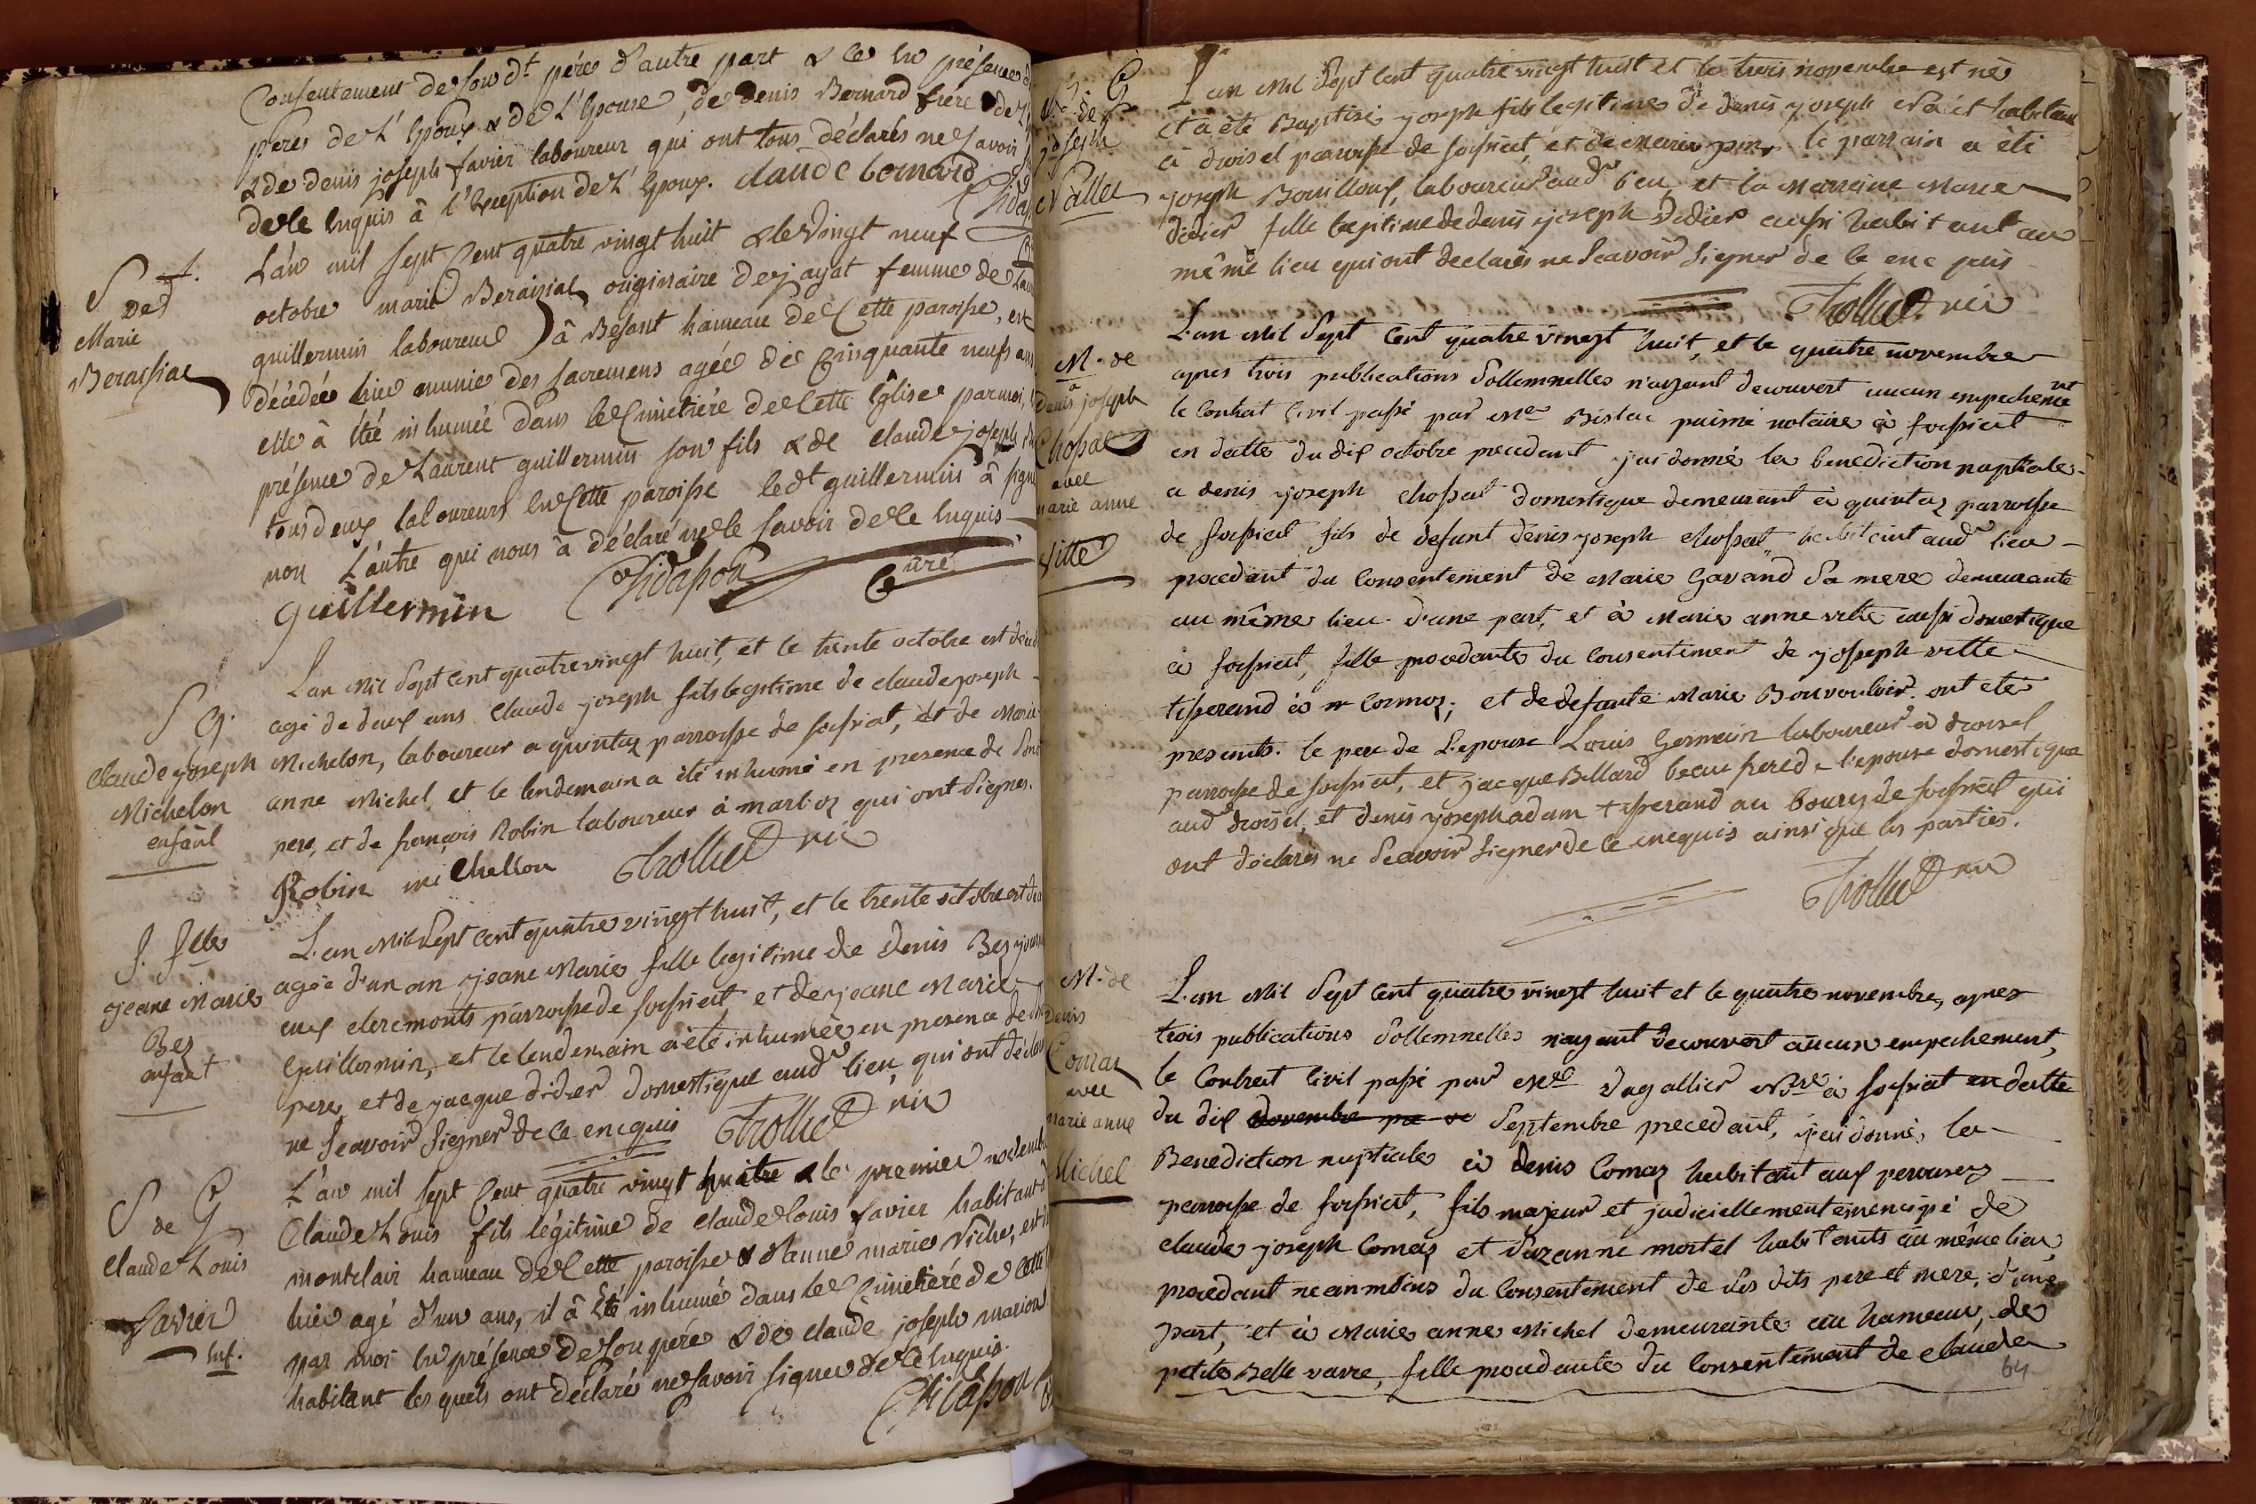 Consentement de son dt père d'autre part & ce en présence
pères de L'Epoux & de L'Epouse, de denis Bernard frère de
& de denis joseph favier laboureur qui ont tous déclarés ne savoir
de ce enquis à l'Exception de L'Epoux. claude bernard
S. f.
de
Marie
Berassiat
L'an mil sept Cent quatre vingt huit & le vingt neuf
octobre marie Beraissat originaire de jayat femme de
guillermin laboureur à Besant hameau de Cette paroisse, est
décédée hier munie des sacremens agée de Cinquante neufs ans
elle à été inhumée dans le Cimetière de Cette Eglise par moi,
présence de Laurent guillermin son fils & de claude joseph
tous deux laboureurs en Cette paroisse le dt guillermin à signé
non L'autre qui nous à déclaré ne le savoir de ce Enquis
guillermin Chidasson Curé
S G.
claude joseph
Michelon
enfant
L'an Mil Sept Cent quatre vingt huit, et le trente octobre est
agé de deux ans claude joseph fils legitime de claude joseph
Michelon, laboureur a quintaz parroisse de foissiat, et de Marie
anne Michel, et le lendemain a été inhumé en presence de son
pere, et de françois Robin laboureur à martioz qui ont signés.
Robin michellon Trolliet vic
S. flle
jeane Marie
Bez
enfant
L'an Mil Sept Cent quatre vingt huit, et le trente octobre est
agée d'un an jeane Marie fille legitime de denis Bez
aux claremonts parroisse de foissiat et de jeane Marie
Guillermin, et le lendemain a été inhumée en presence de
pere, et de jacque didier domestique aud. lieu, qui ont
ne Sçavoir signer de ce enequis Trolliet vic
S de G
claude Louis
favier
Enf.
L'an mil sept Cent quatre vingt quatre & le premier novembre
Claude Louis fils légitime de claude louis favier habitant
montclair hameau de Cette paroisse & d'anne marie Niche, est
hier agé d'un ans, il à Eté inhumé dans le Cimetière de Cette
par moi En présence de son père & de claude joseph marion
habitant les quels ont déclaré ne savoir signer de ce Enquis.
Chidasson
G
de
joseph
Vallet
L'an Mil Sept Cent quatre vingt huit et le trois novembre est nés
et a été Baptisé joseph fils legitime de denis joseph habitant
à droisel parroisse de foissiat, et de Marie le parrain a été
joseph Bouilloux, laboureur aud. lieu, et la Marreine Marie
didier fille legitime de denis joseph didier aussi habitant au
même lieu qui ont declarés ne Sçavoir signer de ce enc quis
Trolliet vic
M. de
denis joseph
Chossat
avec
marie anne
Vitte
L'an Mil Sept Cent quatre vingt huit, et le quatre novembre
apres trois publications sollemnelles n'ayant decouvert aucun empechement
le Contrat Civil passé par Me notaire à foissiat
en datte du dix octobre precedant j'ai donné la benediction nuptiale
a denis joseph chossat domestique demeurant à quintaz parroisse
de foissiat fils de defunt denis joseph chossat habitant aud. lieu
procedant du Consentement de Marie Gavand sa mere demeurante
au même lieu d'une part, et à Marie anne vitte aussi domestique
à foissiat, fille procedante du Consentement de joseph vitte
tisserand à Cormoz; et de defunte Marie Bonvouloir. ont été
presents. le pere de L'epouse Louis Germain laboureur à droisel
parroisse de foissiat, et jacque Billard beau frere de l'epouse domestique
aud. droisel, et denis joseph adam tisserand au bourg de foissiat qui
ont declarés ne Sçavoir signer de ce enequis ainsi que les parties.
Trolliet vic
M. de
denis
Comas
avec
marie anne
Michel
L'an Mil Sept Cent quatre vingt huit et le quatre novembre, apres
trois publications sollemnelles n'ayant decouvert aucun empechement,
le Contrat Civil passé par Me Dagallier à foissiat en datte
du dix novembre Septembre precedant, j'ai donné la
Benediction nuptiale à denis Comaz habitant aux
parroisse de foissiat, fils majeur et judiciellement emencipé de
claude joseph Comaz et Suzanne mortel habitants au même lieu,
procedant neanmoins du Consentement de ses dits pere et mere, d'une
part, et à Marie anne Michel demeurante au hameau de
petite Belle vavre, fille procedante du Consentement de claude
64